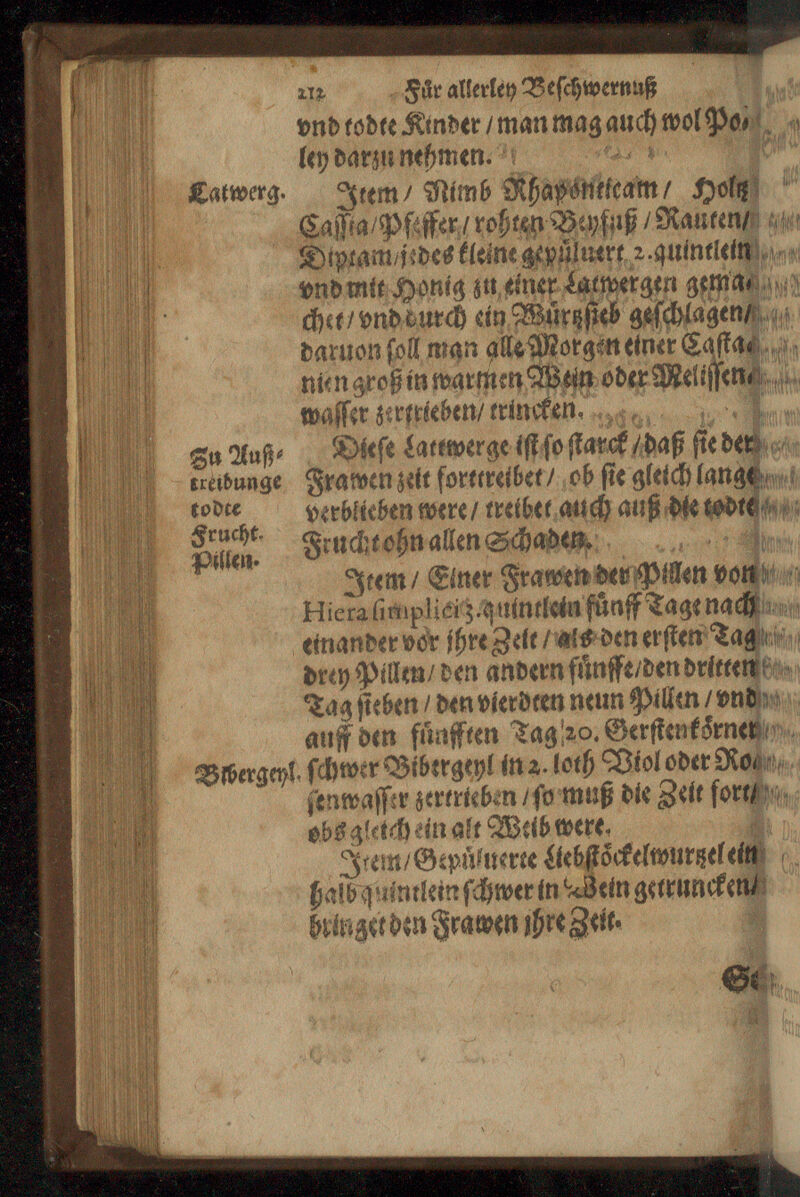 212 Fuͤr allerley Beſchwernuß
vnd todte Kinder / man mag auch wol Po⸗
ley darzu nehmen.
Latwerg. Item / Nimb Rhaponticam / Holtz
Caſſia / Pfeffer / rohten Beyfuß / Rauten /
Diptam / jedes kleine gepuͤluert 2. quintlein
vnd mit Honig zu einer Latwergen gema⸗
chet / vnd durch ein Wuͤrtzſieb geſchlagen /
daruon ſoll man alle Morgen einer Caſta⸗
nien groß in warmen Wein oder Meliſſen⸗
waſſer zertrieben / trincken.
Zu Auß⸗
treibunge
todte
Frucht.
Dieſe Lattwerge iſt ſo ſtarck / daß ſie der
Frawen zeit forttreibet / ob ſie gleich lange
verblieben were / treibet auch auß die todte
Frucht ohn allen Schaden.
Pillen.
Item / Einer Frawen der Pillen von
Hiera ſimplici ʒ. quintlein fuͤnff Tage nach
einander vor jhre Zeit / als den erſten Tag
drey Pillen / den andern fuͤnffe / den dritten
Tag ſieben / den vierdten neun Pillen / vnd
auff den fuͤnfften Tag 20. Gerſtenkoͤrner
Bibergeyl. ſchwer Bibergeyl in 2. loth Viol oder Ro⸗
ſenwaſſer zertrieben / ſo muß die Zeit fort /
obs gleich ein alt Weib were.
Item / Gepuͤluerte Liebſtoͤckelwurtzel ein
halb quintlein ſchwer in Wein getruncken /
bringet den Frawen jhre Zeit.